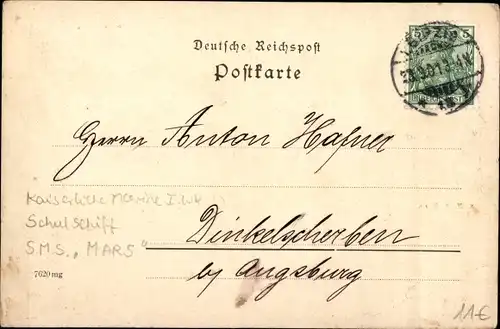 Deutsche Reichspost
Postkarte
LEIPZIG
Herrn Anton Hafner
Kaiserliche Marine I. Wk
Schulschiff
S.M.S. „MARS“
Dinkelscherben
by Augsburg
7620 mg
11€